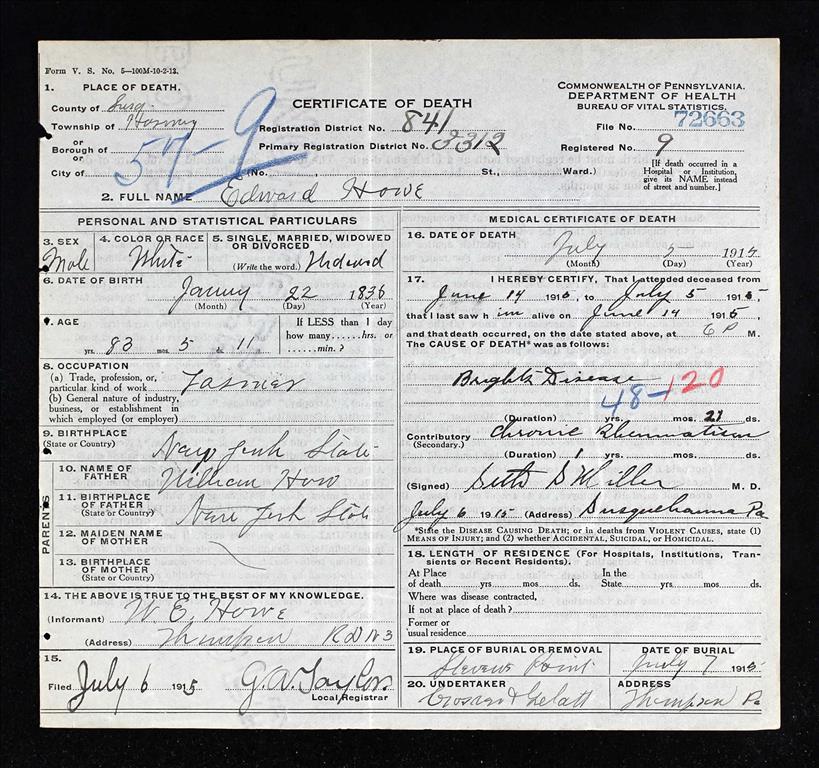 Form V. S. No. 5—100M-10-2-12.
1. PLACE OF DEATH.
County of Susq.
Township of Harmony
or
Borough of
or
City of
57-9
CERTIFICATE OF DEATH
Registration District No. 841
Primary Registration District No. 3312
(No. , St., Ward.)
COMMONWEALTH OF PENNSYLVANIA.
DEPARTMENT OF HEALTH
BUREAU OF VITAL STATISTICS.
File No. 72663
Registered No. 9
[If death occurred in a
Hospital or Institution,
give its NAME instead
of street and number.]
2. FULL NAME Edward Howe
PERSONAL AND STATISTICAL PARTICULARS
3. SEX
Male
4. COLOR OR RACE
White
5. SINGLE, MARRIED, WIDOWED
OR DIVORCED
(Write the word.)
6. DATE OF BIRTH
22 1836
(Month) (Day) (Year)
7. AGE
yrs. 83 mos. 5 ds. 11
If LESS than 1 day
how many......hrs. or
......min.?
8. OCCUPATION
(a) Trade, profession, or,
particular kind of work Farmer
(b) General nature of industry,
business, or establishment in
which employed (or employer)
9. BIRTHPLACE
(State or Country)
State
10. NAME OF
FATHER
William How
11. BIRTHPLACE
OF FATHER
(State or Country)
State
12. MAIDEN NAME
OF MOTHER
13. BIRTHPLACE
OF MOTHER
(State or Country)
PARENTS
14. THE ABOVE IS TRUE TO THE BEST OF MY KNOWLEDGE.
(Informant) W E Howe
(Address) Thompson R D No 3
15.
Filed July 6 1915 G. A. Taylor
Local Registrar
MEDICAL CERTIFICATE OF DEATH
16. DATE OF DEATH
July 5 1915
(Month) (Day) (Year)
17. I HEREBY CERTIFY, That I attended deceased from
June 14 1915, to July 5 1915,
that I last saw h im alive on June 14 1915
and that death occurred, on the date stated above, at 6 P M.
The CAUSE OF DEATH* was as follows:
Brights Disease
48-120
(Duration) yrs. mos. 21 ds.
Contributory Chronic Rheumatism
(Secondary.)
(Duration) 1 yrs. mos. ds.
(Signed) Seth S Miller M. D.
July 6 1915 (Address) Susquehanna Pa
*State the DISEASE CAUSING DEATH; or in deaths from VIOLENT CAUSES, state (1)
MEANS OF INJURY; and (2) whether ACCIDENTAL, SUICIDAL, or HOMICIDAL.
18. LENGTH OF RESIDENCE (For Hospitals, Institutions, Tran-
sients or Recent Residents).
At Place In the
of death......yrs......mos......ds. State......yrs......mos......ds.
Where was disease contracted,
If not at place of death?
Former or
usual residence
19. PLACE OF BURIAL OR REMOVAL
Stevens Point
DATE OF BURIAL
July 7 1915
20. UNDERTAKER
ADDRESS
Thompson Pa